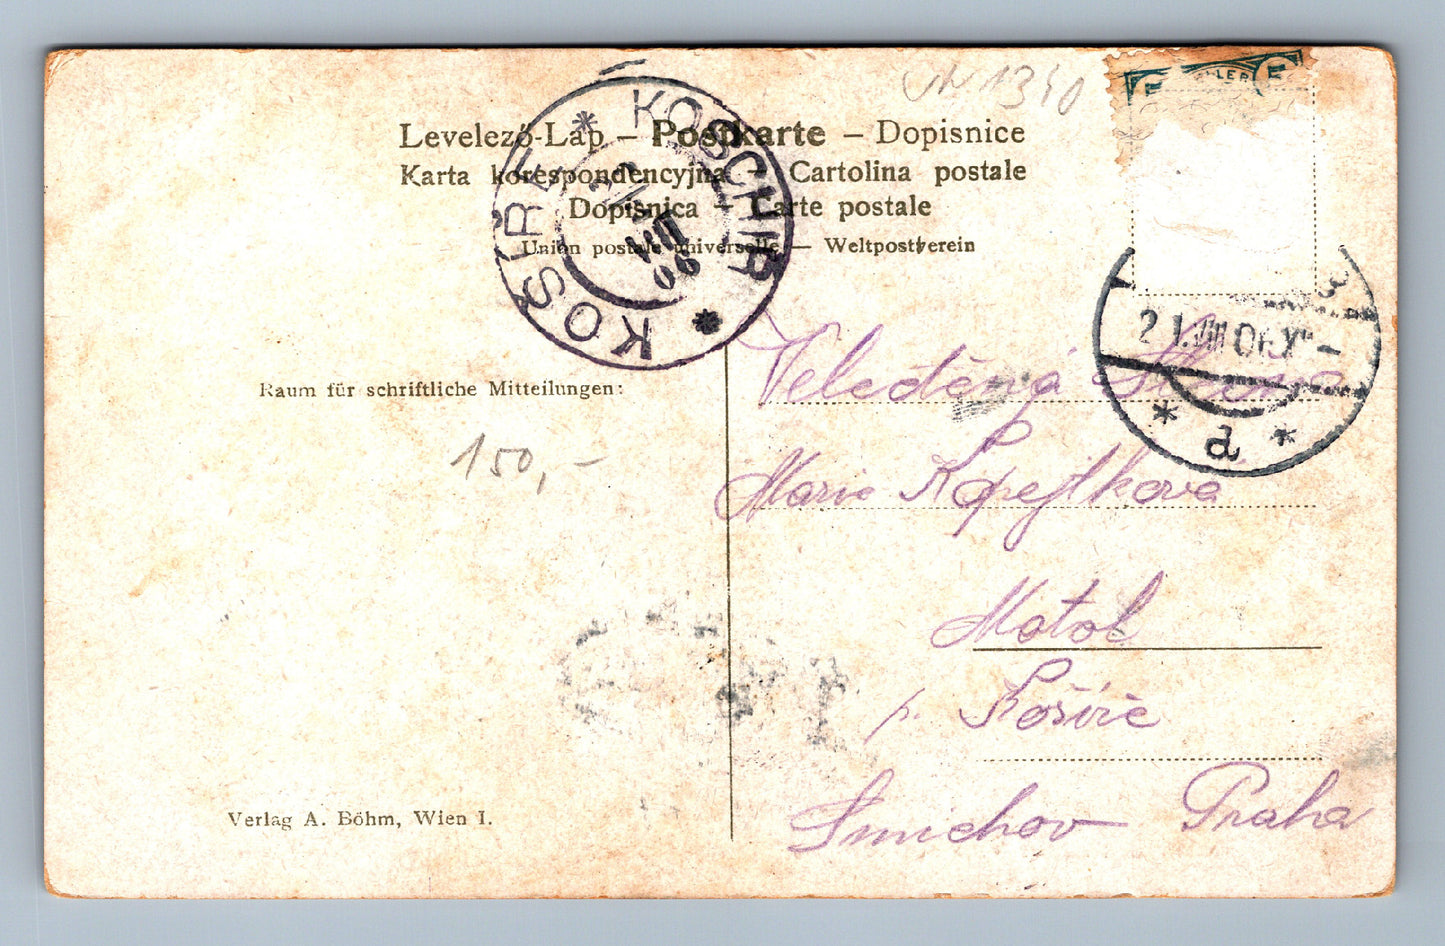 Levelező-Lap – Postkarte – Dopisnice
Karta korespondencyjna – Cartolina postale
Dopisnica – Carte postale
Union postale universelle – Weltpostverein
* KOSCHIR * KOŠÍŘE
VIII
06
LLER
21.VIII 06 X
* d *
Raum für schriftliche Mitteilungen:
150,-
Velectěná Slečna
Marie Kopejtkova
Motol
p. Košíře
Smichov Praha
Verlag A. Böhm, Wien I.